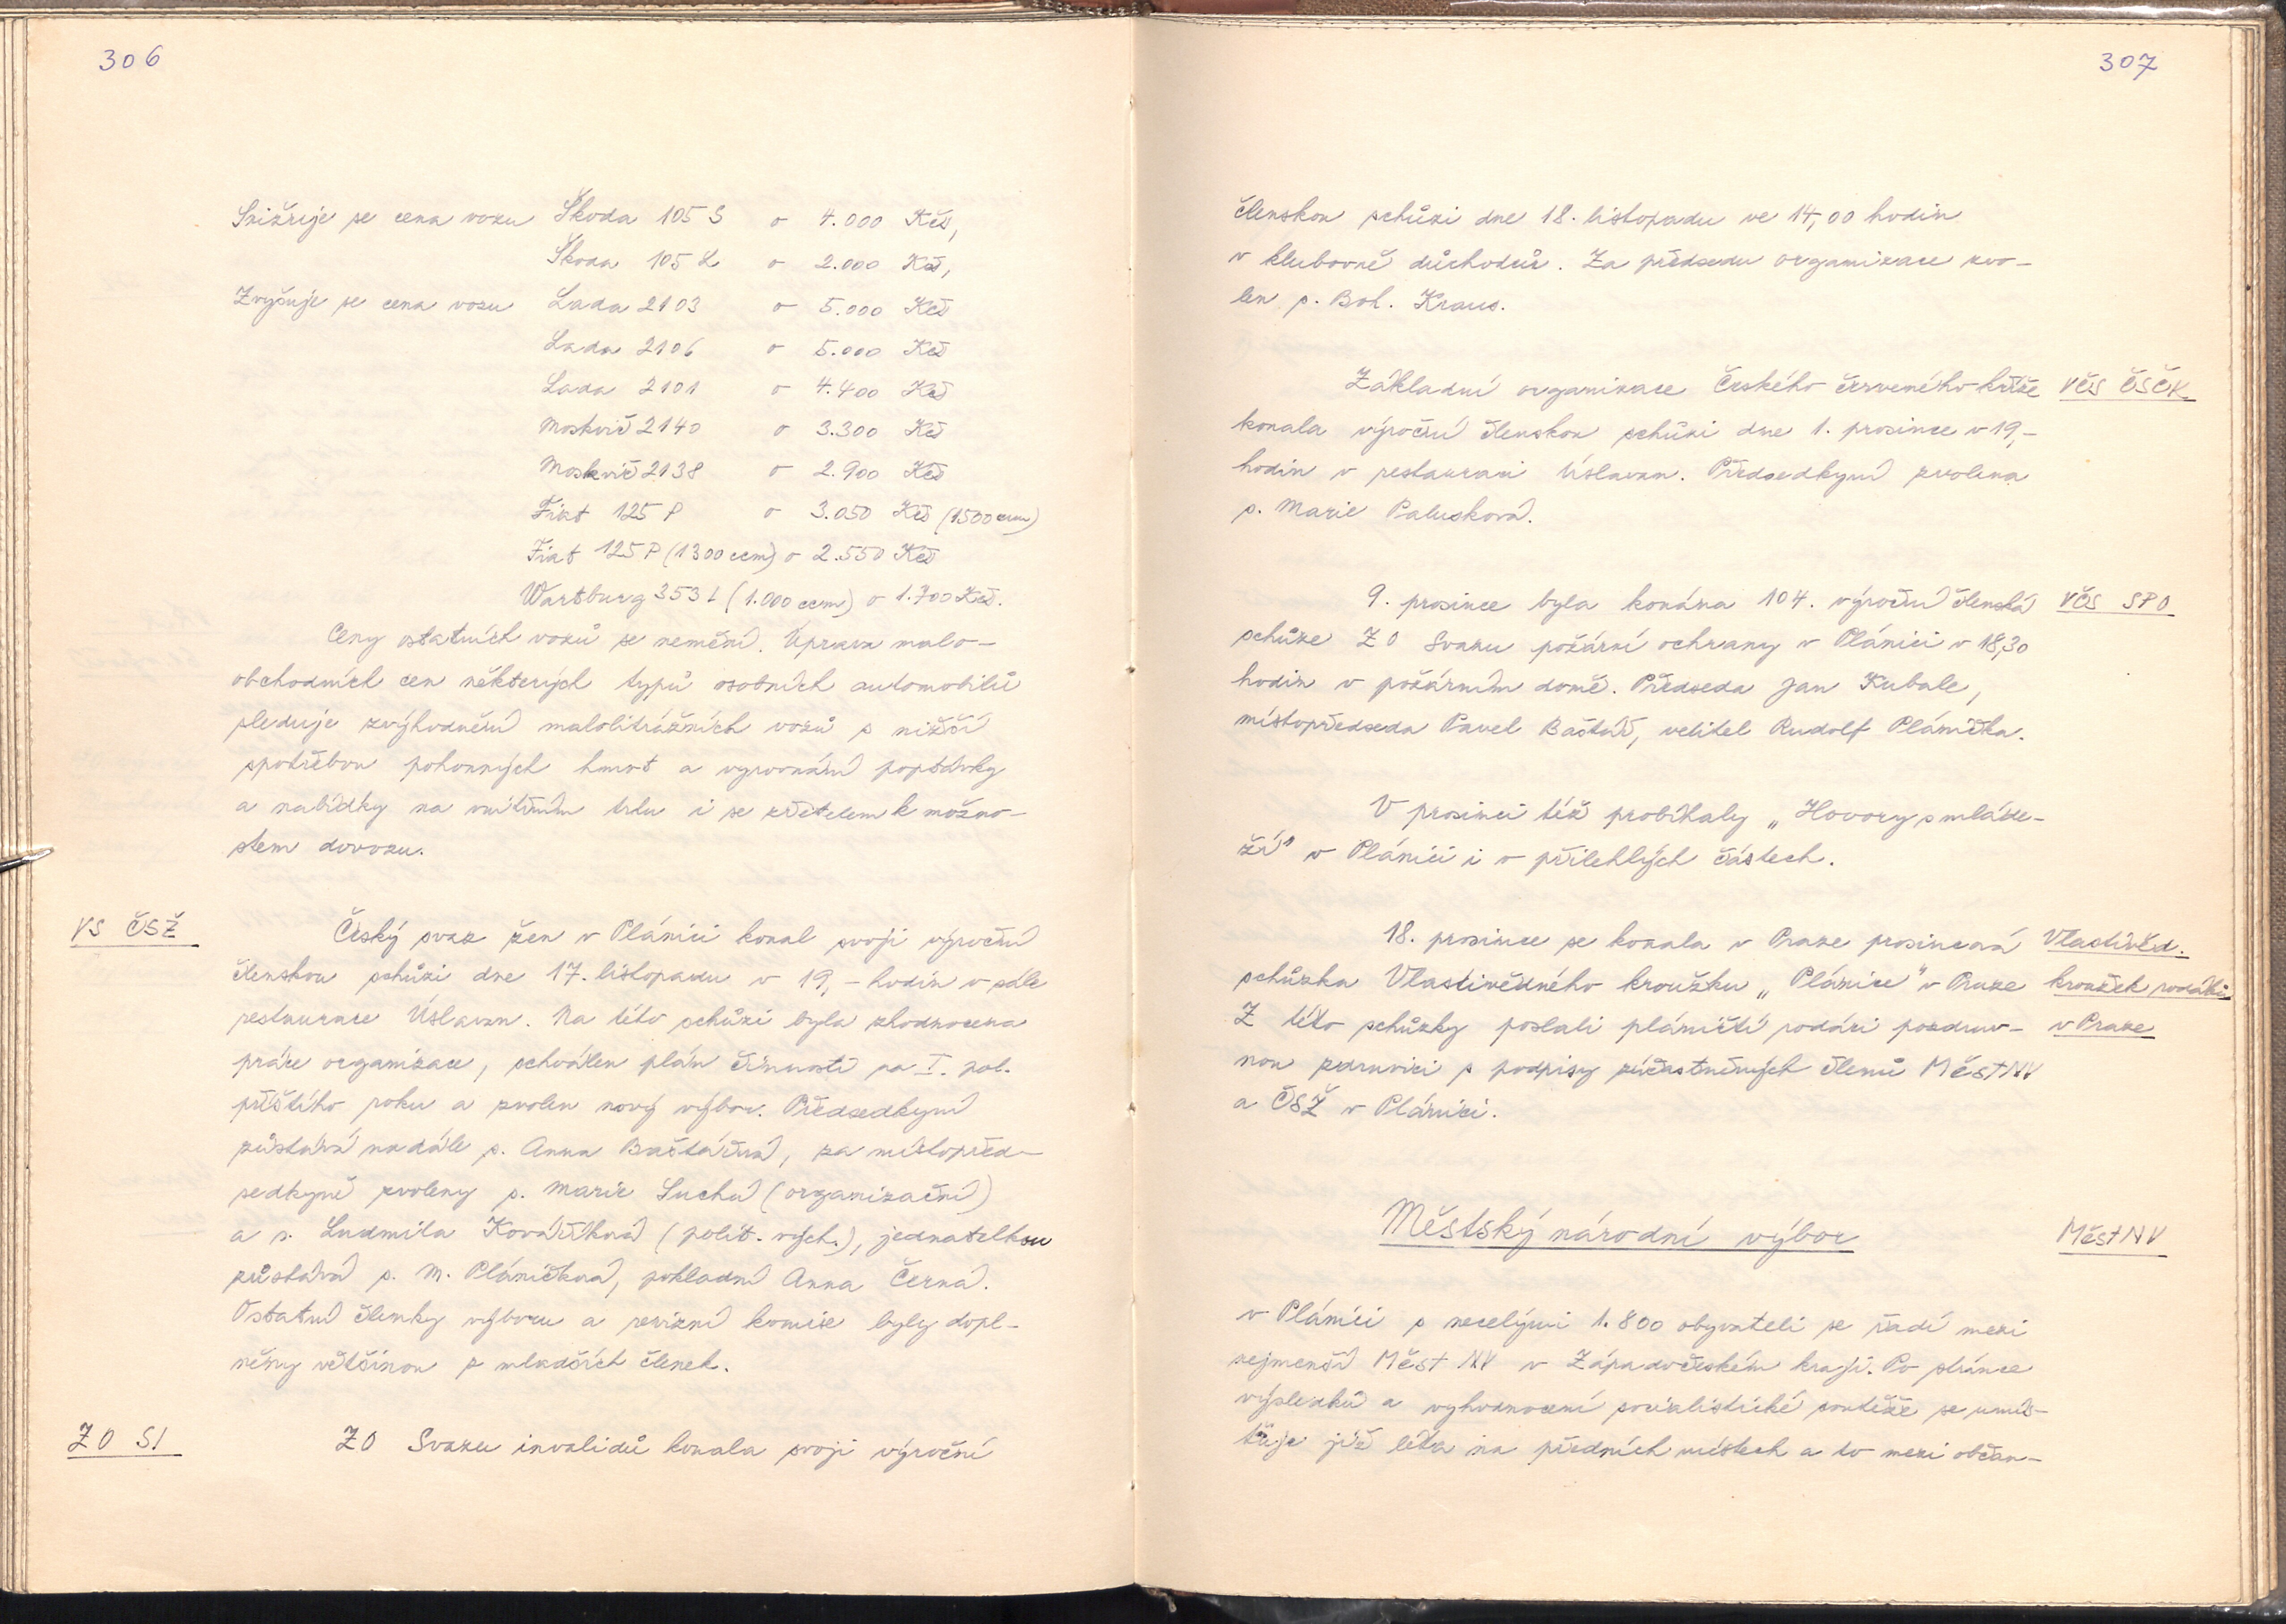 306
Snižuje se cena vozu Škoda 105 S o 4.000 Kčs,
Škoda 105 L o 2.000 Kčs,
Zvyšuje se cena vozu Lada 2103 o 5.000 Kčs
Lada 2106 o 5.000 Kčs
Lada 2101 o 4.400 Kčs
Moskvič 2140 o 3.300 Kčs
Moskvič 2138 o 2.900 Kčs
Fiat 125 P o 3.050 Kčs (1500 ccm)
Fiat 125 P (1300 ccm) o 2.550 Kčs
Wartburg 353 L (1.000 ccm) o 1.700 Kčs.
Ceny ostatních vozů se nemění. Úprava malo-
obchodních cen některých typů osobních automobilů
sleduje zvýhodnění malolitrážních vozů s nižší
spotřebou pohonných hmot a vyrovnání poptávky
a nabídky na vnitřním trhu i se zřetelem k možno-
stem dovozu.
VS ČSŽ
Český svaz žen v Plánici konal svoji výroční
členskou schůzi dne 17. listopadu v 19,- hodin v sále
restaurace Úslavan. Na této schůzi byla zhodnocena
práce organizace, schválen plán činnosti na I. pol.
příštího roku a zvolen nový výbor. Předsedkyní
zůstává nadále s. Anna Baštářová, za místopřed-
sedkyně zvoleny s. Marie Suchá (organizační)
a s. Ludmila Kováříková (polit. vých.), jednatelkou
zůstává s. M. Pláničková, pokladní Anna Černá.
Ostatní členky výboru a revizní komise byly dopl-
něny většinou z mladších členek.
ZO SI
ZO Svazu invalidů konala svoji výroční
307
členskou schůzi dne 18. listopadu ve 14,00 hodin
v klubovně důchodců. Za předsedu organizace zvo-
len s. Boh. Kraus.
Základní organizace Českého červeného kříže VČS ČSČK
konala výroční členskou schůzi dne 1. prosince v 19,-
hodin v restauraci Úslavan. Předsedkyní zvolena
s. Marie Palusková.
9. prosince byla konána 104. výroční členská VČS SPO
schůze ZO Svazu požární ochrany v Plánici v 18,30
hodin v požárním domě. Předseda Jan Kubale,
místopředseda Pavel Baštář, velitel Rudolf Plánička.
V prosinci též probíhaly „Hovory s mláde-
ží" v Plánici i v přilehlých částech.
18. prosince se konala v Praze prosincová Vlastivěd.
schůzka Vlastivědného kroužku „Plánice" v Praze kroužek rodáků
Z této schůzky poslali pláničtí rodáci pozdrav- v Praze
nou zdravici s podpisy zúčastněných členů MěstNV
a ČSŽ v Plánici.
Městský národní výbor MěstNV
v Plánici s necelými 1.800 obyvateli se řadí mezi
nejmenší Měst NV v Západočeském kraji. Po stránce
výsledků a vyhodnocení socialistické soutěže se umís-
ťuje již léta na předních místech a to mezi občan-